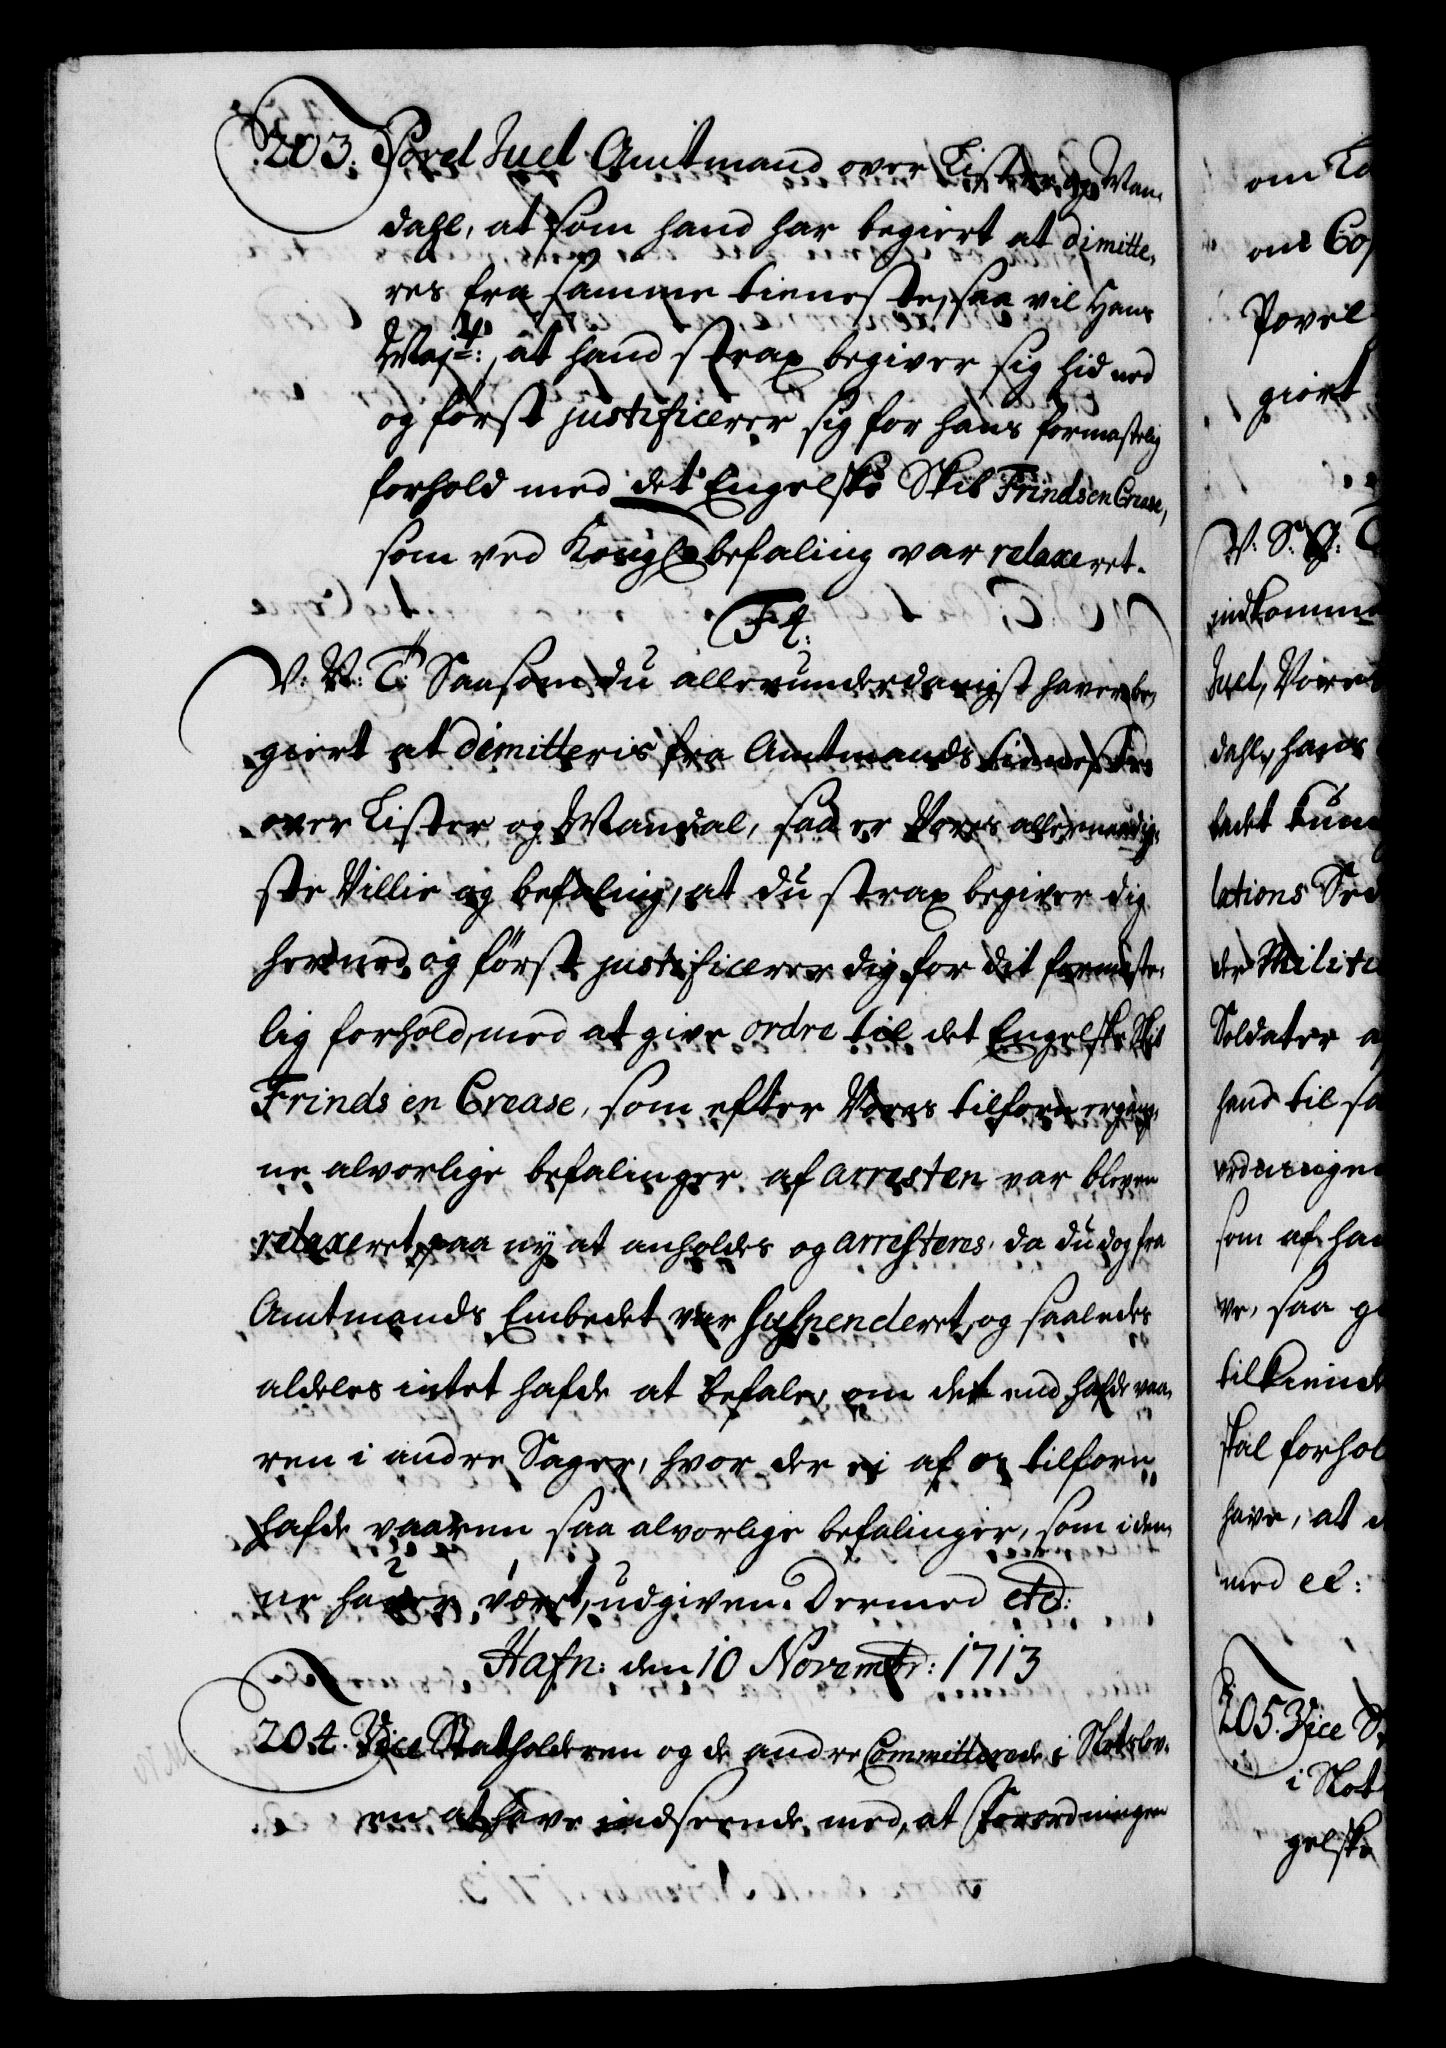 203. Povel Juel Amtmand over Lister og Man-
dahl, at som hand har begiert at dimitte-
res fra samme tieneste, saa vil Hans
Majt:, at hand strax begiver sig hid ned
og først justificerer sig for hans formastelig
forhold med det Engelske Skib Frinds en Crease,
som ved Kongl. befaling var relaxeret.
F 4.
V: V: T: Saasom du allerunderdanigst haver be-
giert at dimitteris fra Amtmands tienesten
over Lister og Mandal, saa er Vores allernaadig-
ste Villie og befaling, at du strax begiver dig
herned og først justificerer dig for dit formaste-
lig forhold, med at give ordre til det Engelske Skib
Frinds en Crease, som efter Vores tilforn ergang-
ne alvorlige befalinger af arresten var bleven
relaxeret, paa ny at anholdes og arresteres, da du dog fra
Amtmands Embedet var suspenderet, og saaledes
aldeles intet hafde at befale, om det end hafde vaa-
ren i andre Sager, hvor der ei af os tilforn
hafde vaaren saa alvorlige befalinger, som i den-
ne haver været, udgiven. Dermed etc:
Hafn: den 10 Novembr: 1713
204. Vice Statholderen og de andre Committerede i Slotslov-
en at have indseende med, at Forordningen
om
om
Povel
giort
V. S. G:
indkomme
Juel, Vores
dahl, hans
lations
der Milit
Soldater
hand til
som af
ve, saa
tilkiende
skal forhol
have, at
med ec:
205. Vice
i Slot
gelske